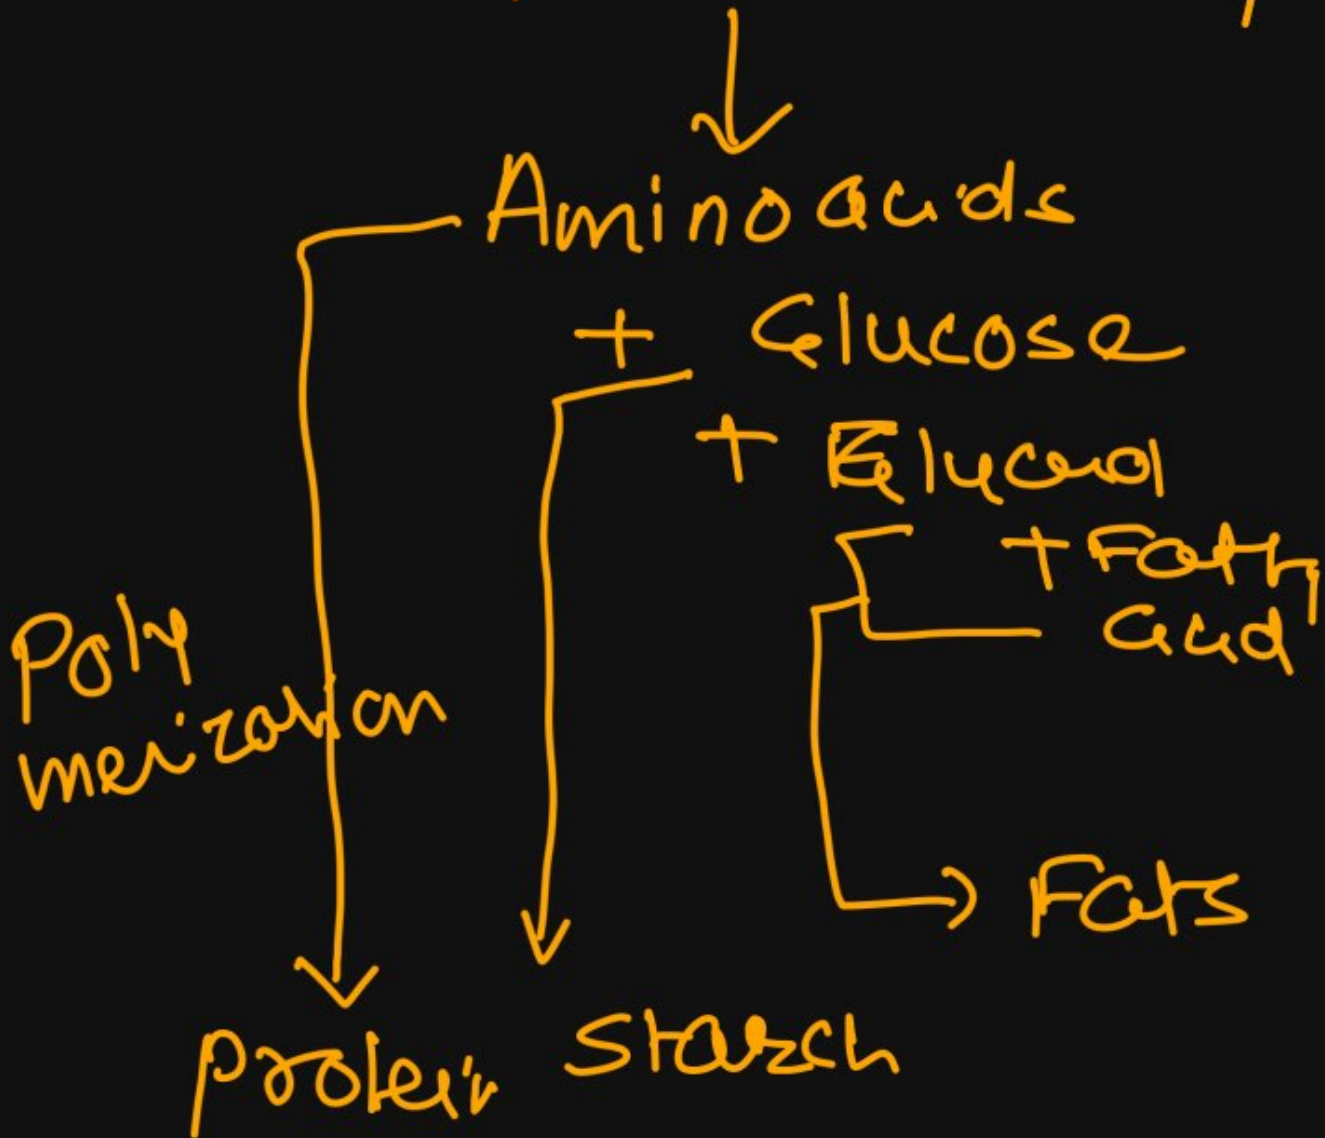 Amino acids
+ Glucose
+ Glycerol
+ Fatty
acid
Poly
merization
Fats
Protein Starch